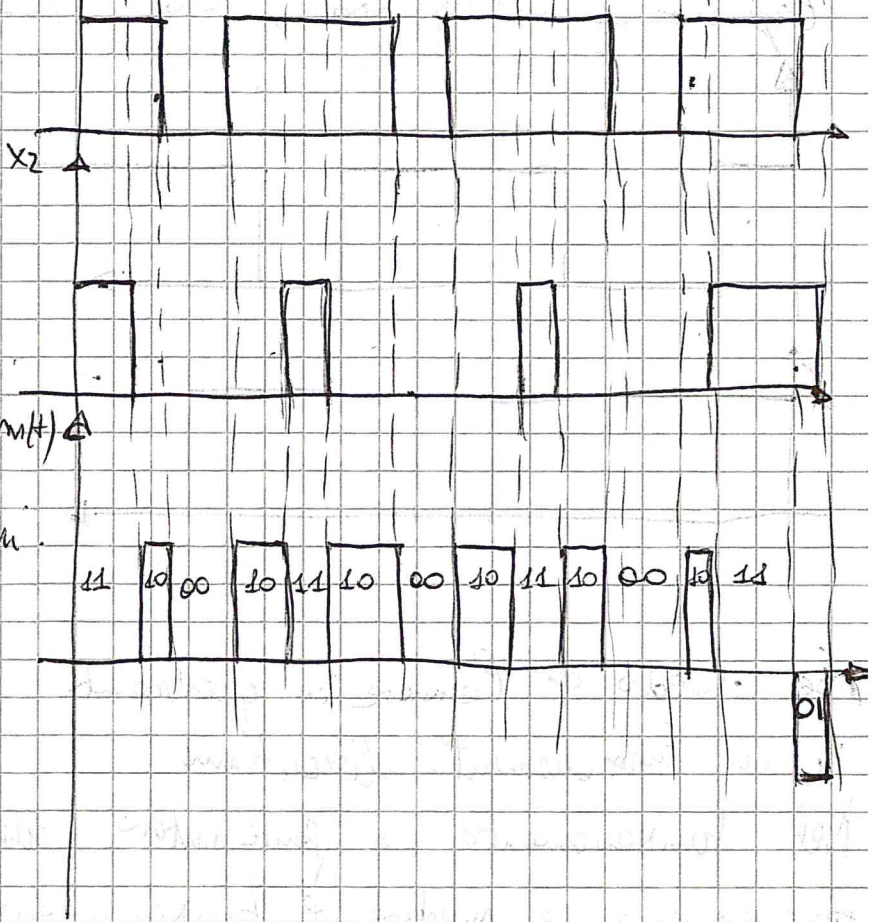 X2
m(t)
11 10 00 10 11 10 00 10 11 10 00 10 11
01